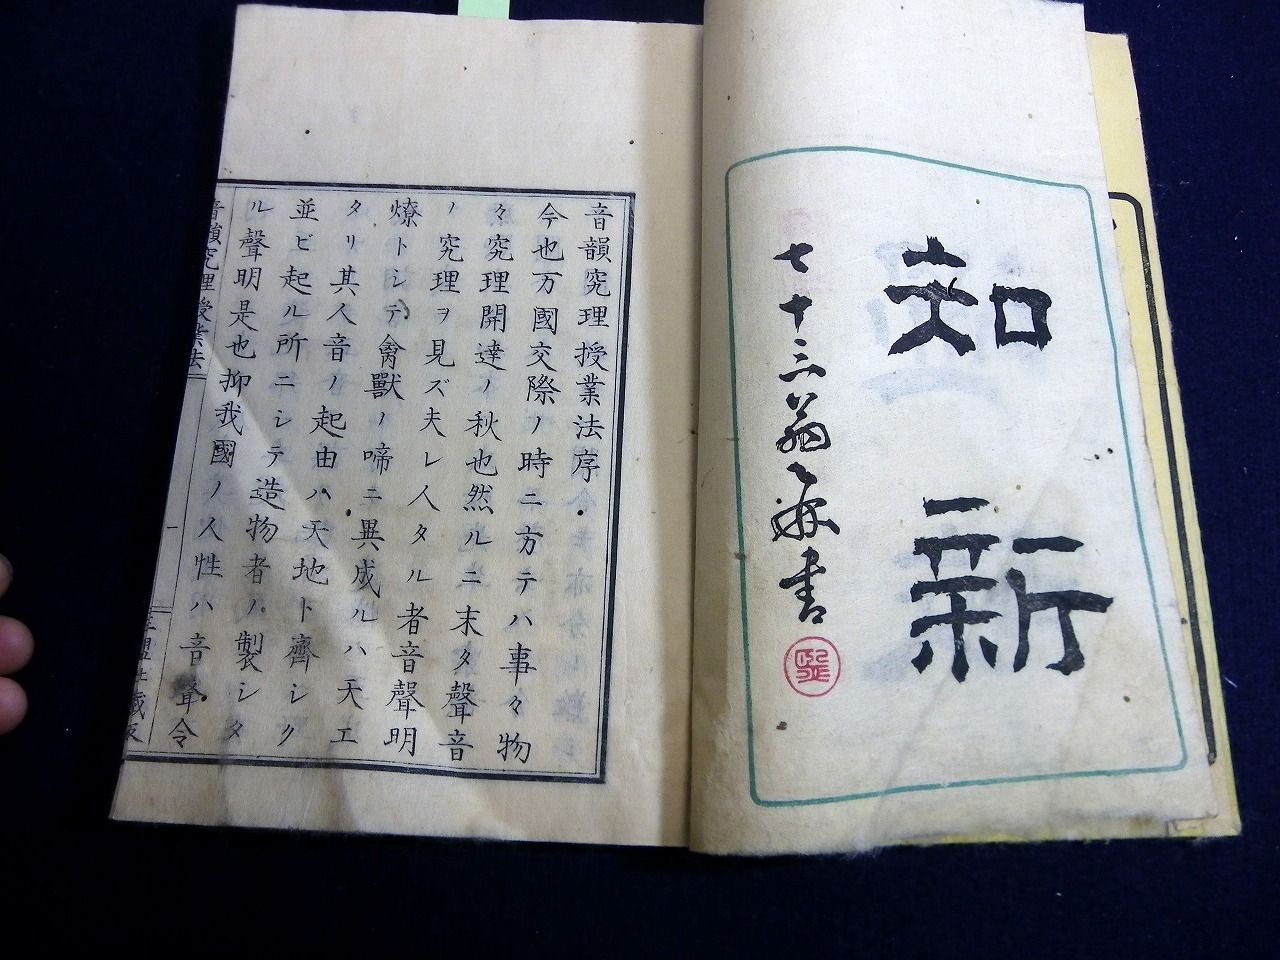 知新
七十三翁
書
音韻究理授業法序
今也万國交際ノ時ニ方テハ事々物
々究理開達ノ秋也然ルニ末タ聲音
ノ究理ヲ見ズ夫レ人タル者音聲明
燎トシテ禽獸ノ啼ニ異成ルハ天工
タリ其人音ノ起由ハ天地ト齊シク
並ビ起ル所ニシテ造物者ノ製シタ
ル聲明是也抑我國ノ人性ハ音聲令
音韻究理授業法
一